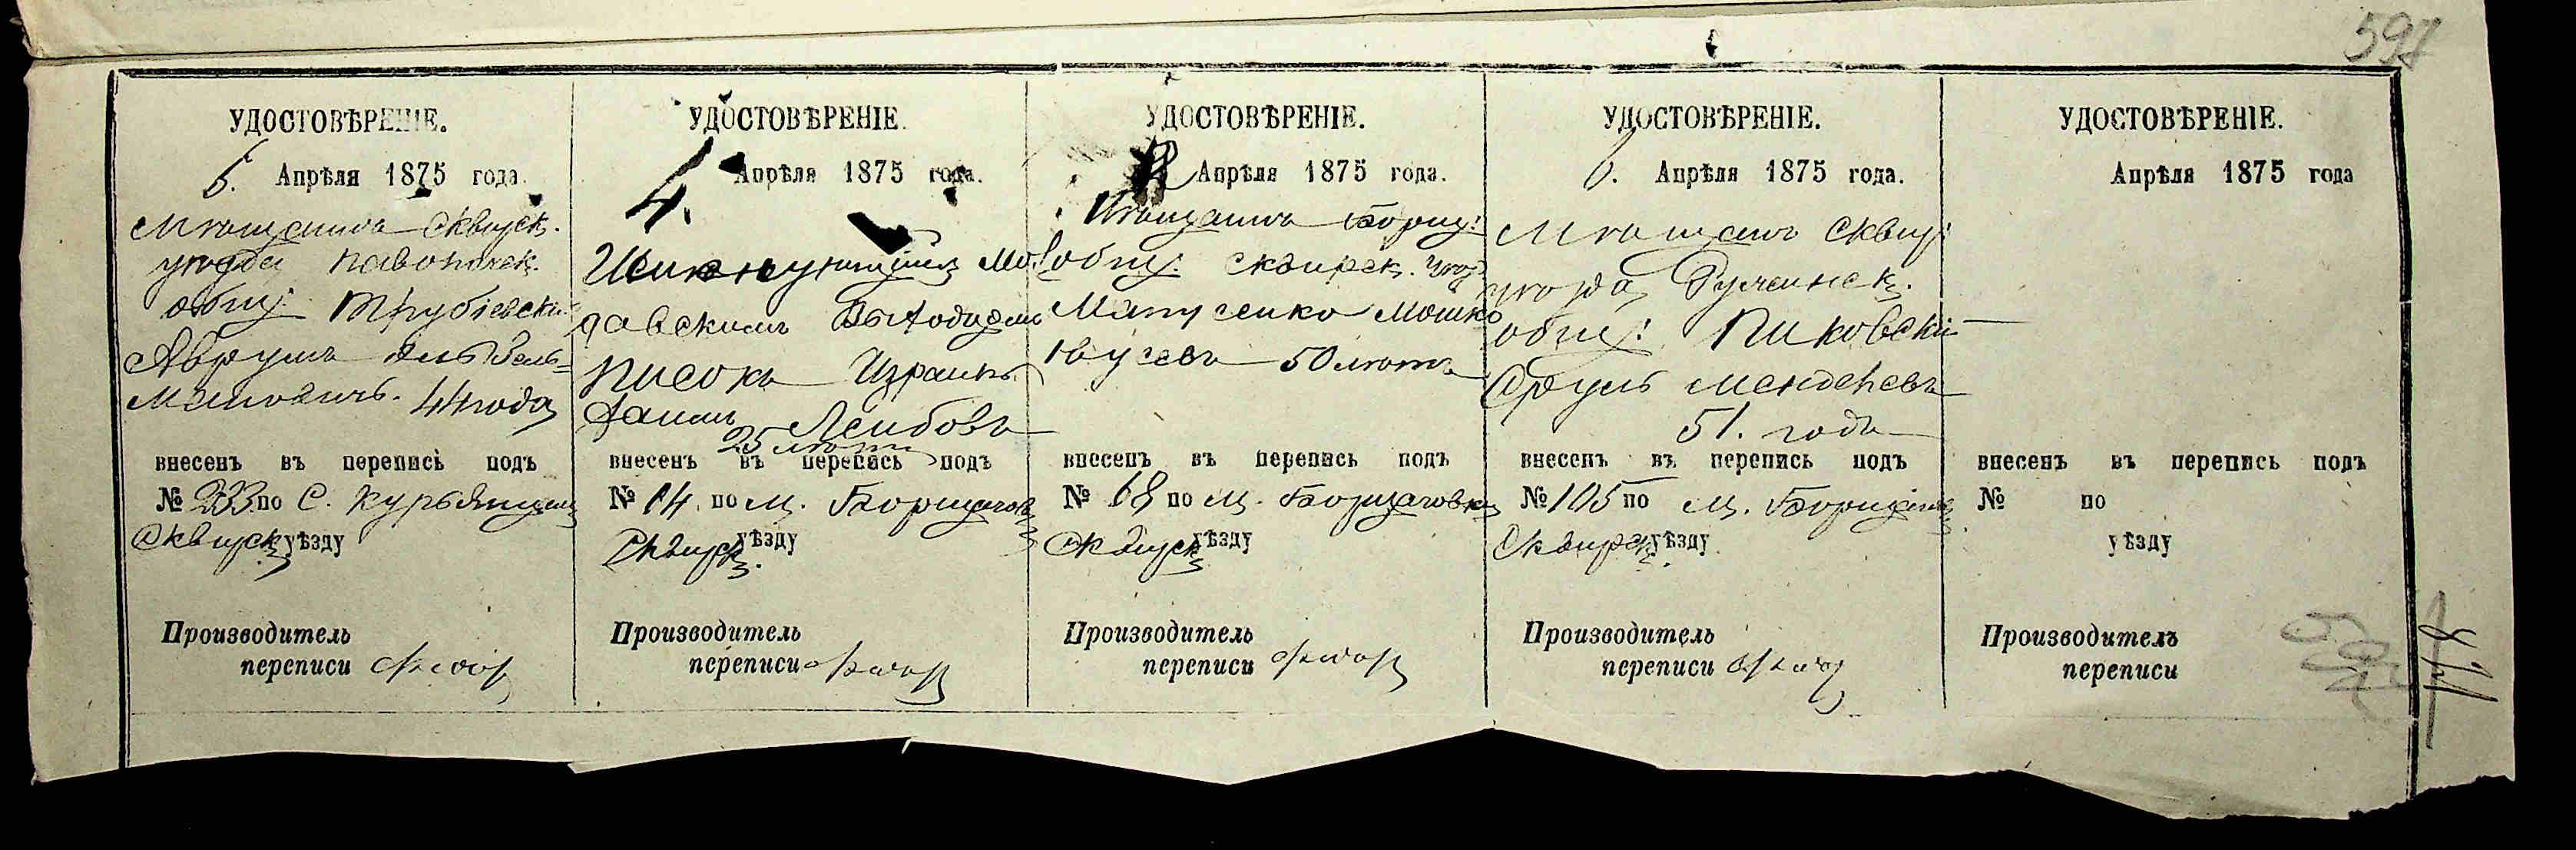 597
УДОСТОВѢРЕНІЕ.
6. Апрѣля 1875 года.
Мѣщанинъ Сквирск.
уѣзда
общ. Трубіевскій
Аврумъ
44 года
внесенъ въ перепись подъ
№ 233 по С.
Сквирск. уѣзду
Производитель
переписи
УДОСТОВѢРЕНІЕ.
4. Апрѣля 1875 года.
Именующійся Мол
давскимъ Выходцемъ
Писокъ Израиль
Хаимъ Лейбовъ
25 лѣтъ
внесенъ въ перепись подъ
№ 14. по М. Борщаговк
Сквирск. уѣзду
Производитель
переписи
УДОСТОВѢРЕНІЕ.
Апрѣля 1875 года.
Мѣщанинъ Борщ:
общ: Сквирск. уѣз
Матусенко Мошко
50 лѣтъ
внесенъ въ перепись подъ
№ 68 по М. Борщаговк
Сквирск уѣзду
Производитель
переписи
УДОСТОВѢРЕНІЕ.
Апрѣля 1875 года.
Мѣщанъ Сквир:
уѣзда Ружинск.
общ: Пиковскій
Сруль Менделевъ
51. годъ
внесенъ въ перепись подъ
№ 105 по М. Борщаговк
Сквирск. уѣзду
Производитель
переписи
УДОСТОВѢРЕНІЕ.
Апрѣля 1875 года
внесенъ въ перепись подъ
№ по
уѣзду
Производитель
переписи